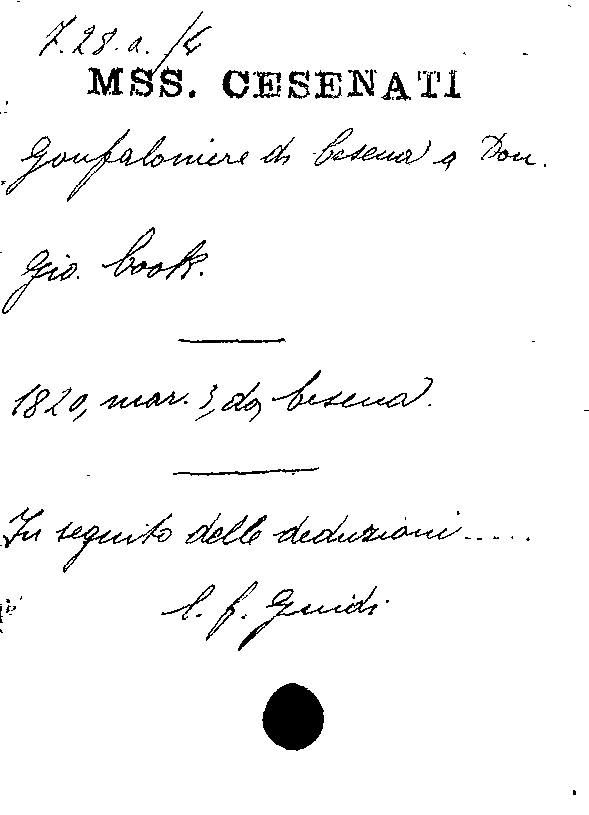 7.28.a./4
MSS. CESENATI
Gonfaloniere di Cesena a Don.
Gio. Cook.
1820, mar. 3, da Cesena.
In seguito delle deduzioni.....
C. f. Guidi